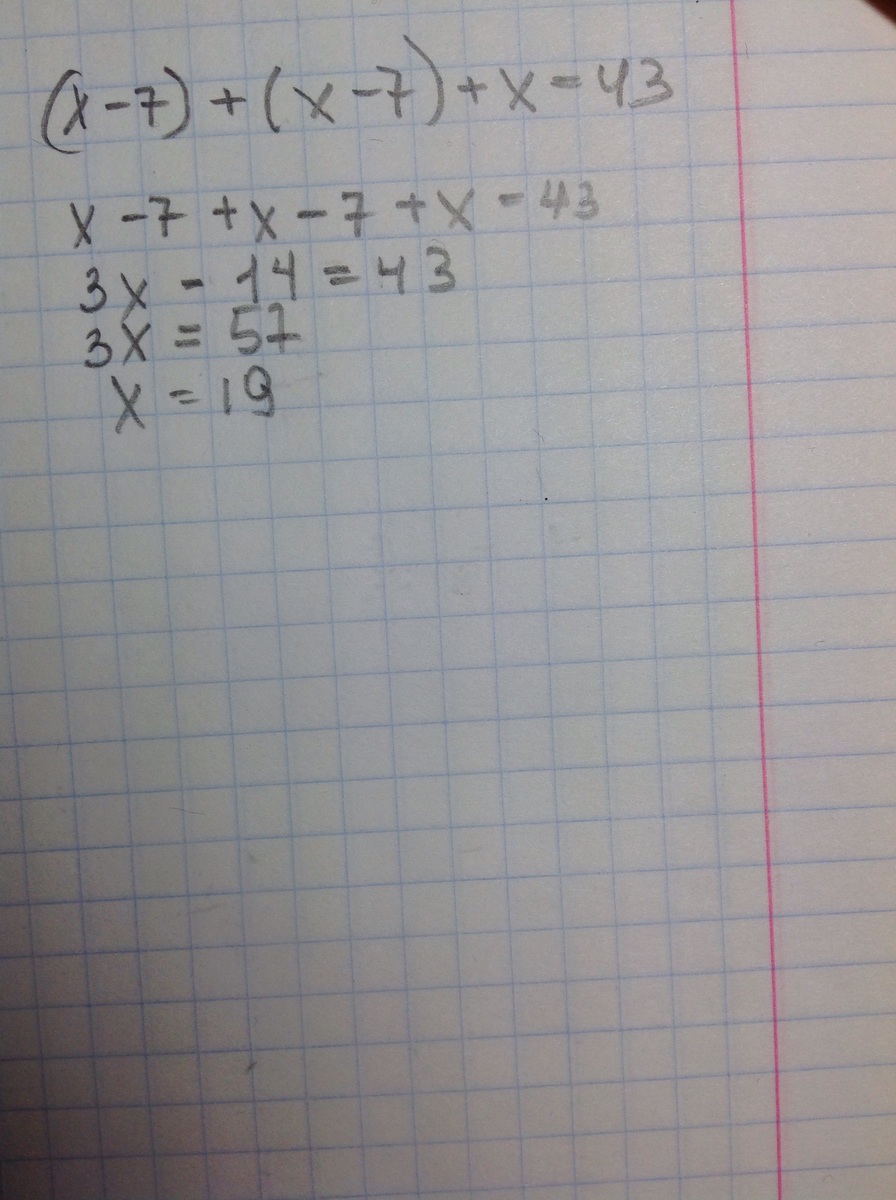 (x-7)+(x-7)+x=43
x-7+x-7+x=43
3x-14=43
3x=57
x=19